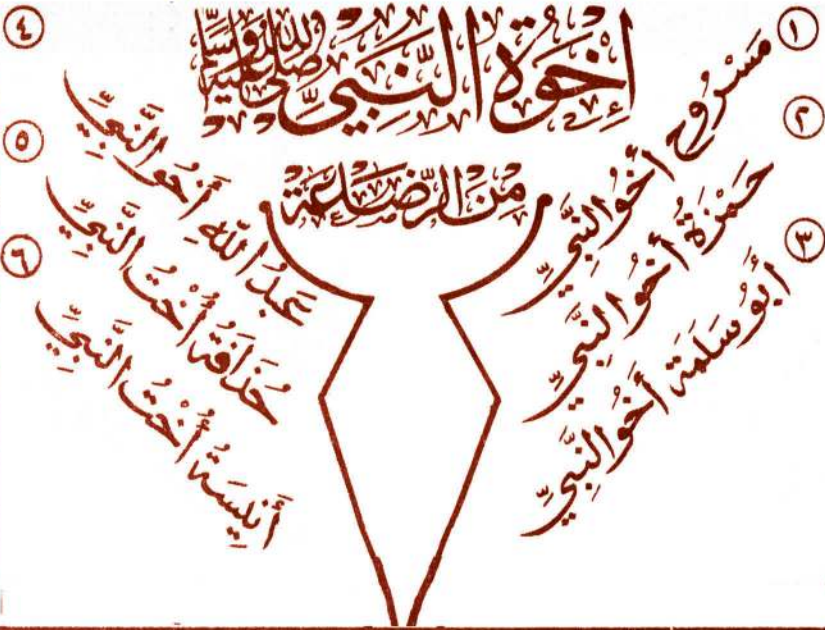 إِخْوَةُ النَّبِيِّ صلى الله عليه وسلم
مِنَ الرَّضَاعَةِ
١ مَسْرُوح أَخُو النَّبِيِّ
٢ حَمْزَةُ أَخُو النَّبِيِّ
٣ أَبُو سَلَمَةَ أَخُو النَّبِيِّ
٤ عَبْدُ اللَّهِ أَخُو النَّبِيِّ
٥ حُذَافَةُ أُخْتُ النَّبِيِّ
٦ أَنِيسَةُ أُخْتُ النَّبِيِّ